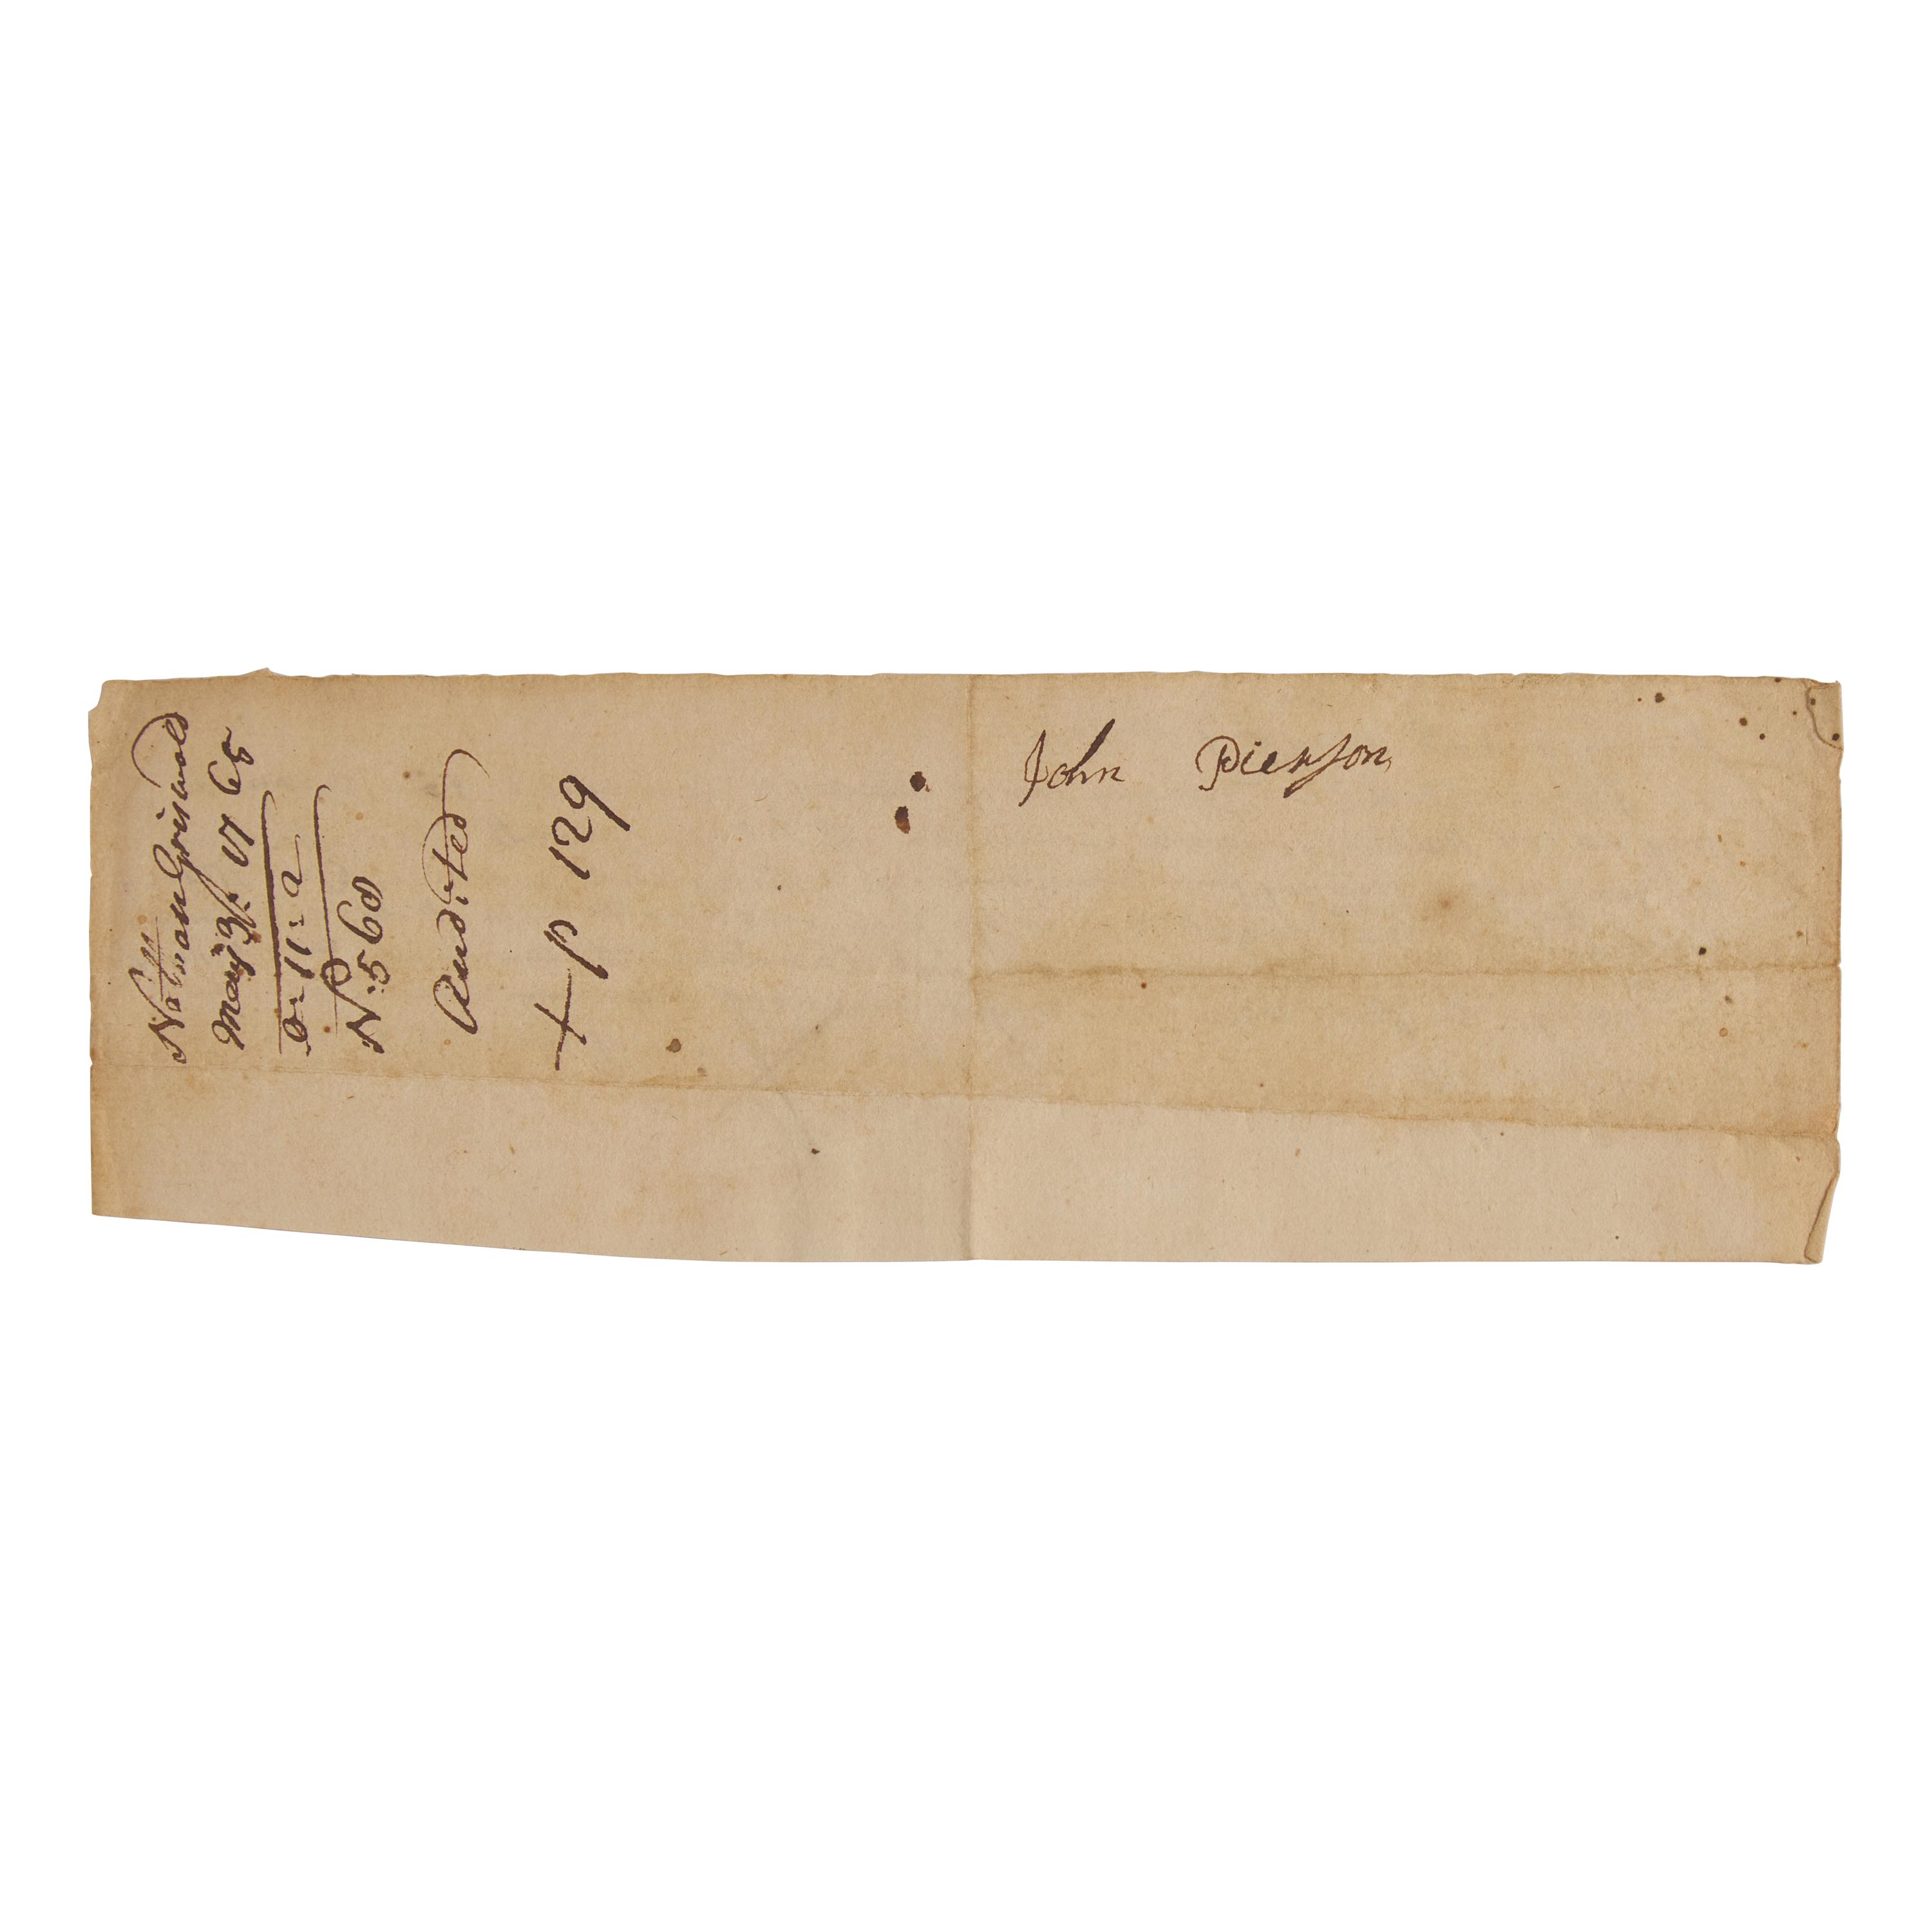 Nathan Griswold
May 31: 17 65
0 - 11 - 2
No: 568
Audited
+ p 129
John Pierson